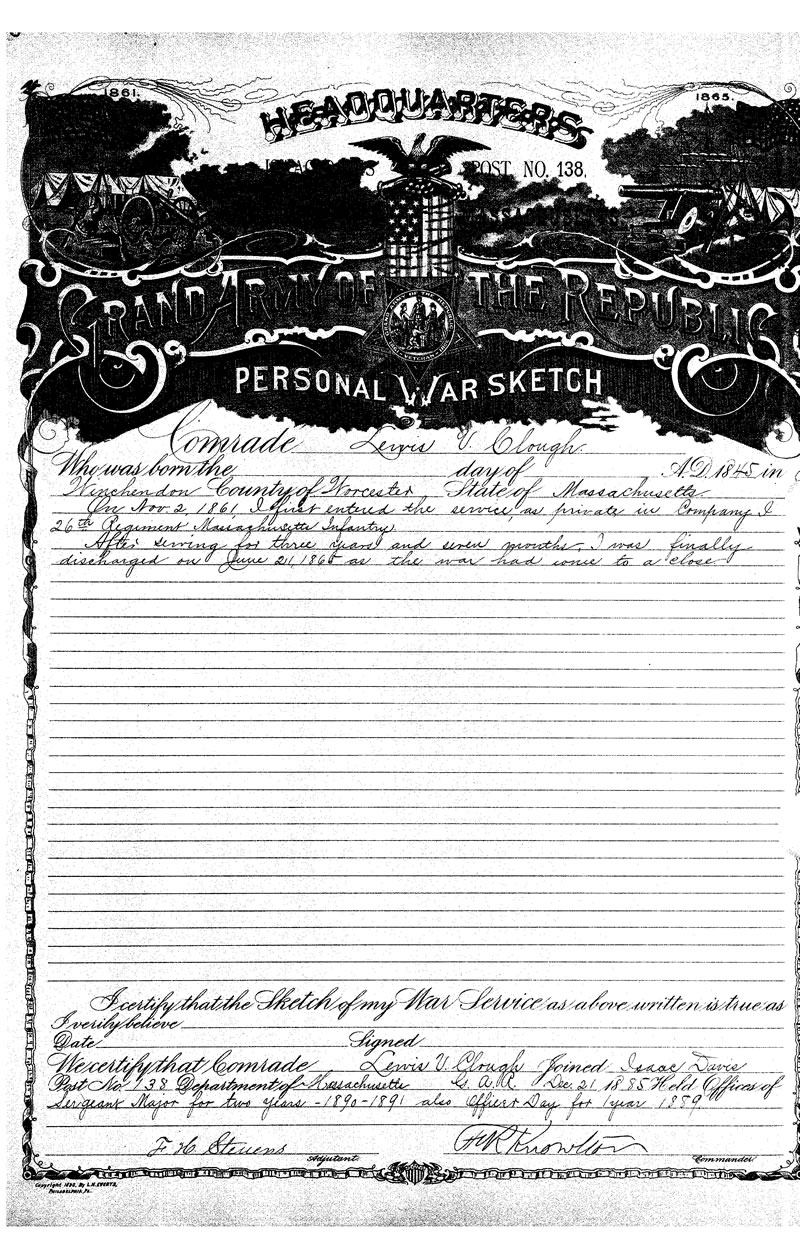 1861.
1865.
HEADQUARTERS
POST NO. 138,
MASSACHUSETTS
GRAND ARMY OF THE REPUBLIC
VETERAN
PERSONAL WAR SKETCH
Comrade Lewis V. Clough.
Who was born the day of A.D. 1845 in
Winchendon County of Worcester State of Massachusetts.
On Nov. 2, 1861, I first entered the service, as private in Company I
26th Regiment Massachusetts Infantry.
After serving for three years and seven months, I was finally
discharged on June 21, 1865 as the war had come to a close.
I certify that the Sketch of my War Service as above written is true as
I verily believe
Date Signed
We certify that Comrade Lewis V. Clough Joined Isaac Davis
Post No. 138 Department of Massachusetts G. A. R. Dec. 21, 1885 Held Offices of
Sergeant Major for two years - 1890-1891 also Officer Day for 1 year 1889
F. H. Stevens Adjutant. Knowlton Commander
Copyright 1890, By L.H. EVERTS,
PHILADELPHIA, PA.